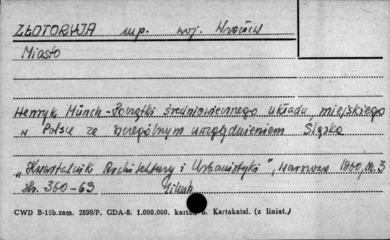 ZŁOTORYJA m.p. woj. Wrocław
Miasto
Henryk Münch - Początki średniowiecznego układu miejskiego
w Polsce ze szczególnym uwzględnieniem Śląska
„Kwartalnik Architektury i Urbanistyki", Warszawa 1960, Nr. 3
str. 360-63
CWD B-15b.zam. 2899/P, GDA-8. 1.000.000. kartek b. Kartakatal. (z liniat.)